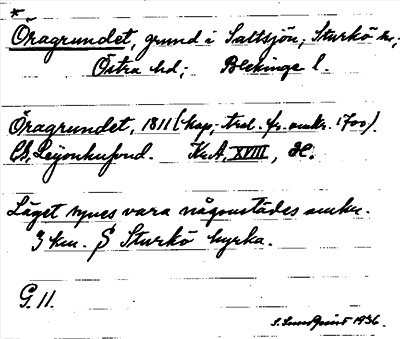 *
Öragrundet, grund i Saltsjön; Sturkö sn;
Östra hd; Blekinge l.
Öragrundet, 1811 (kop; ftrl. fr. omkr. 1700).
Leijonhufvud. KrA, XVIII, H.
Läget synes vara någonstädes omkr.
3 km. S Sturkö kyrka.
G. 11.
S. Lundquist 1936.